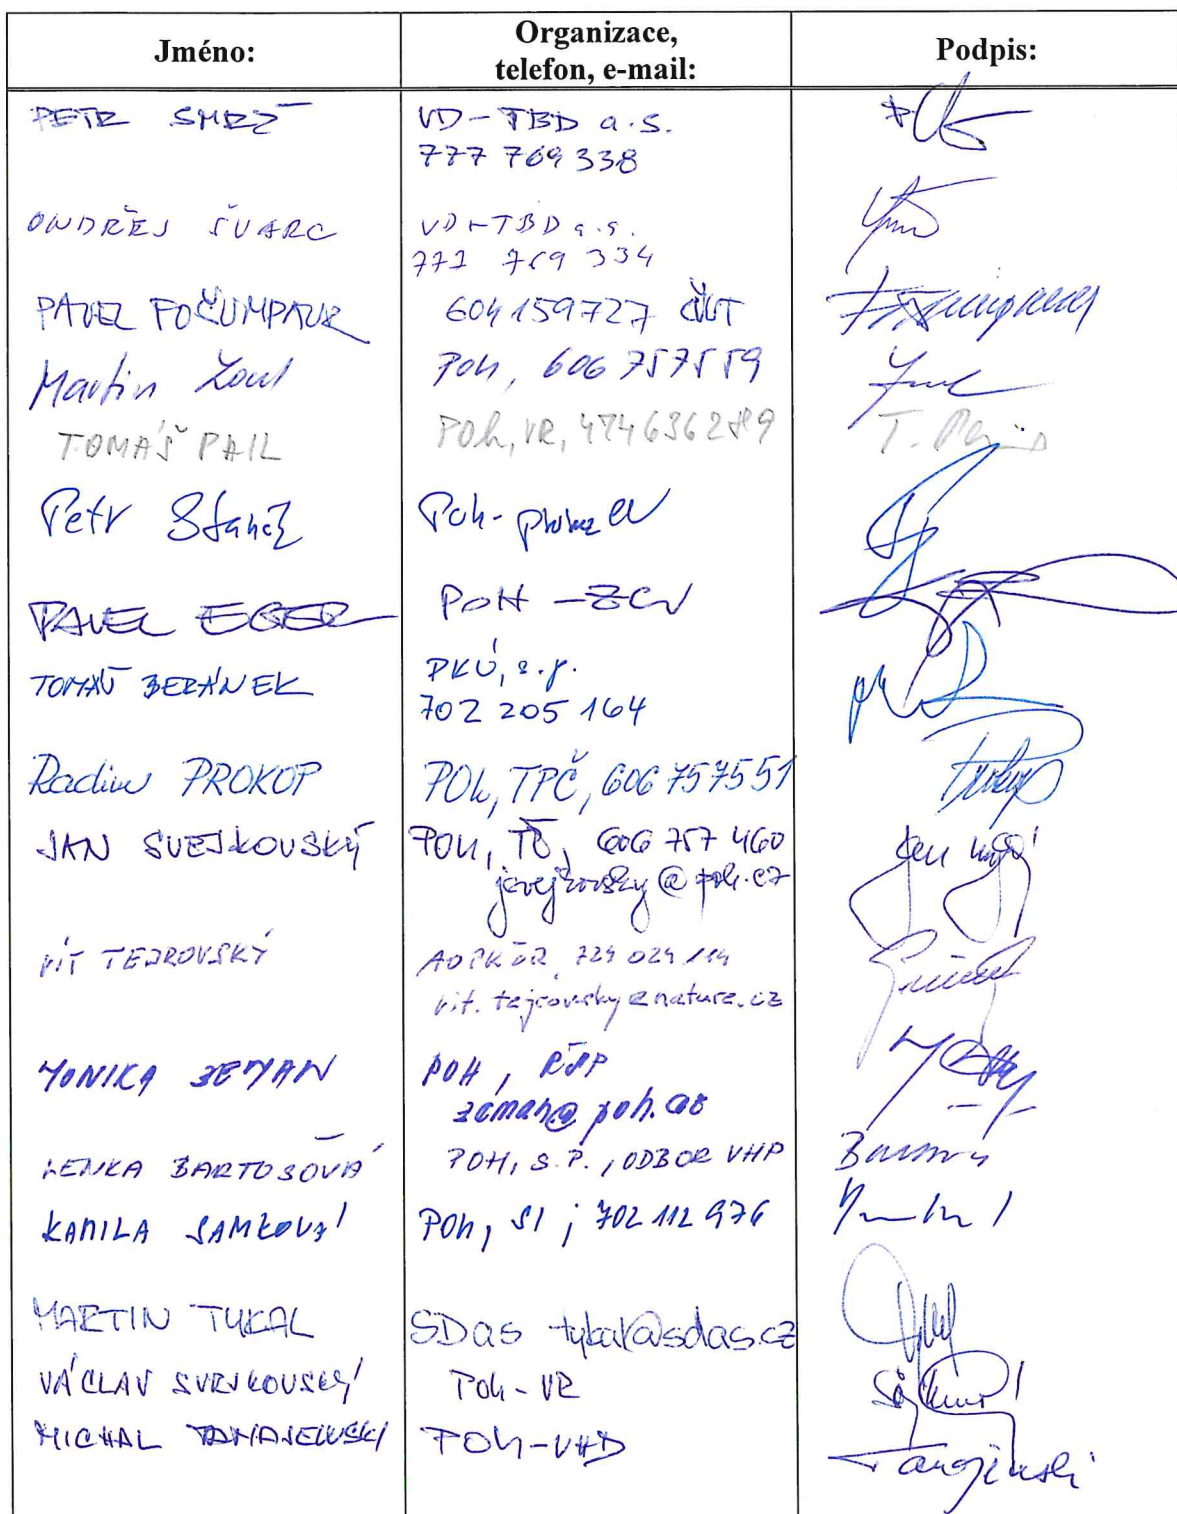 Jméno:
Organizace,
telefon, e-mail:
Podpis:
PETR SMRŽ
VD-TBD a.s.
777 769 338
ONDŘEJ ŠVARC
VD-TBD a.s.
777 769 334
PAVEL FOŠUMPAUR
604 159727 ČVUT
Martin
POh, 606 757559
TOMÁŠ PAIL
POh, VR, 4746362
T.
Petr
POh-
PAVEL EGER
POH -ZCV
TOMÁŠ BERÁNEK
PKÚ, s.p.
702 205 164
Radim PROKOP
POh, TPČ, 606 757551
JAN SVEJKOVSKÝ
POh, TČ, 606 757 460
jsvejkovsky@poh.cz
VÍT TEJROVSKÝ
AOPK ČR, 724 024 114
vit.tejrovsky@nature.cz
MONIKA ZEMAN
POH,
zeman@poh.cz
LENKA BARTOŠOVÁ
POH, S.P., ODBOR VHP
KAMILA SAMKOVÁ
POh, SI; 702 112 976
MARTIN TYKAL
SDas tykal@sdas.cz
VÁCLAV SVEJKOVSKÝ
POh-VR
MICHAL TANAJEWSKI
POh-VHD
Tanajewski